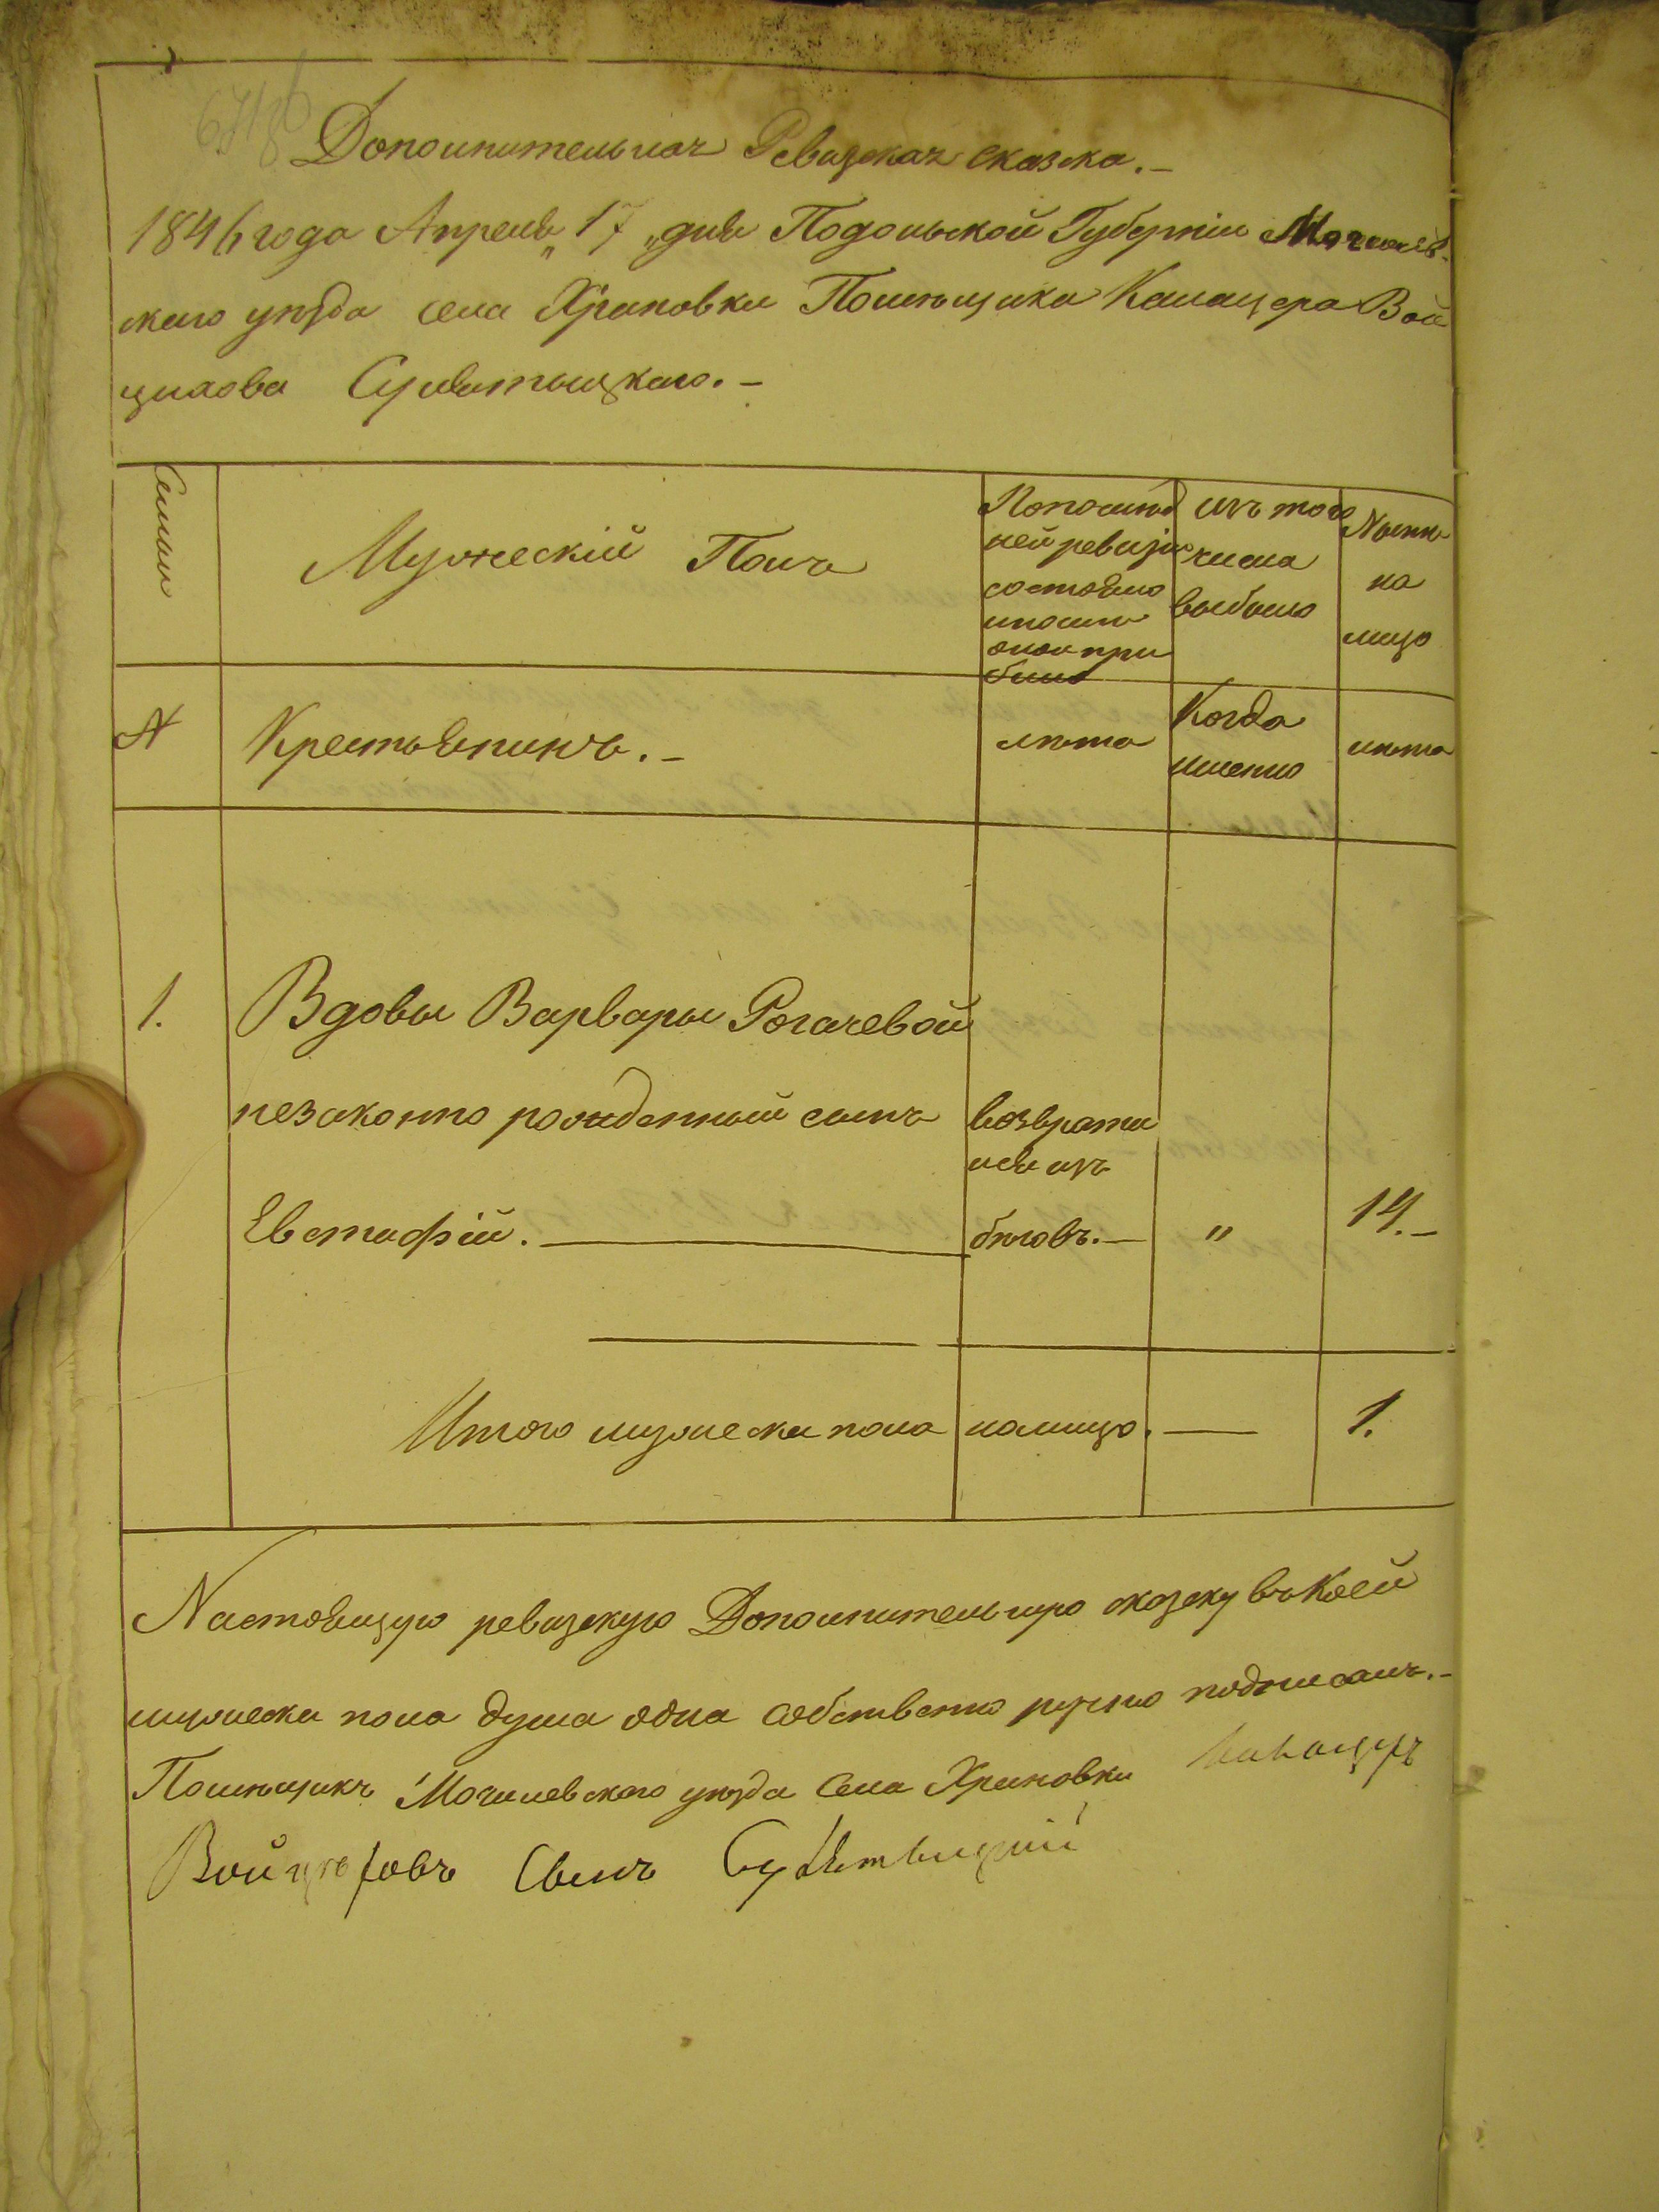 Дополнительная Ревизская сказка.-
1846 года Апреля „17„ дня Подольской Губерніи Могилев-
скаго уѣзда села Хрѣновки Помѣщика Калацера Вой
цехова Сулятыцкаго.-
Семьи
Мужескій Полъ
По послѣд
ней ревизіи
состояло
и послѣ
оной при
было
изъ того
числа
выбыло
Нынѣ
на
лицо
№
Крестьянинъ.-
лѣта
Когда
именно
лѣта
1.
Вдовы Варвары Рогачевой
незаконно рожденный сынъ
возврати
лся изъ
Евстафій.
бѣговъ.-
„
14.-
Итого мужеска пола
налицо.
1.
Настоящую ревизскую Дополнительную сказку въ коей
мужеска пола душа одна собственно ручно подписалъ.-
Помѣщикъ Могилевскаго уѣзда села Хрѣновки
Сынъ